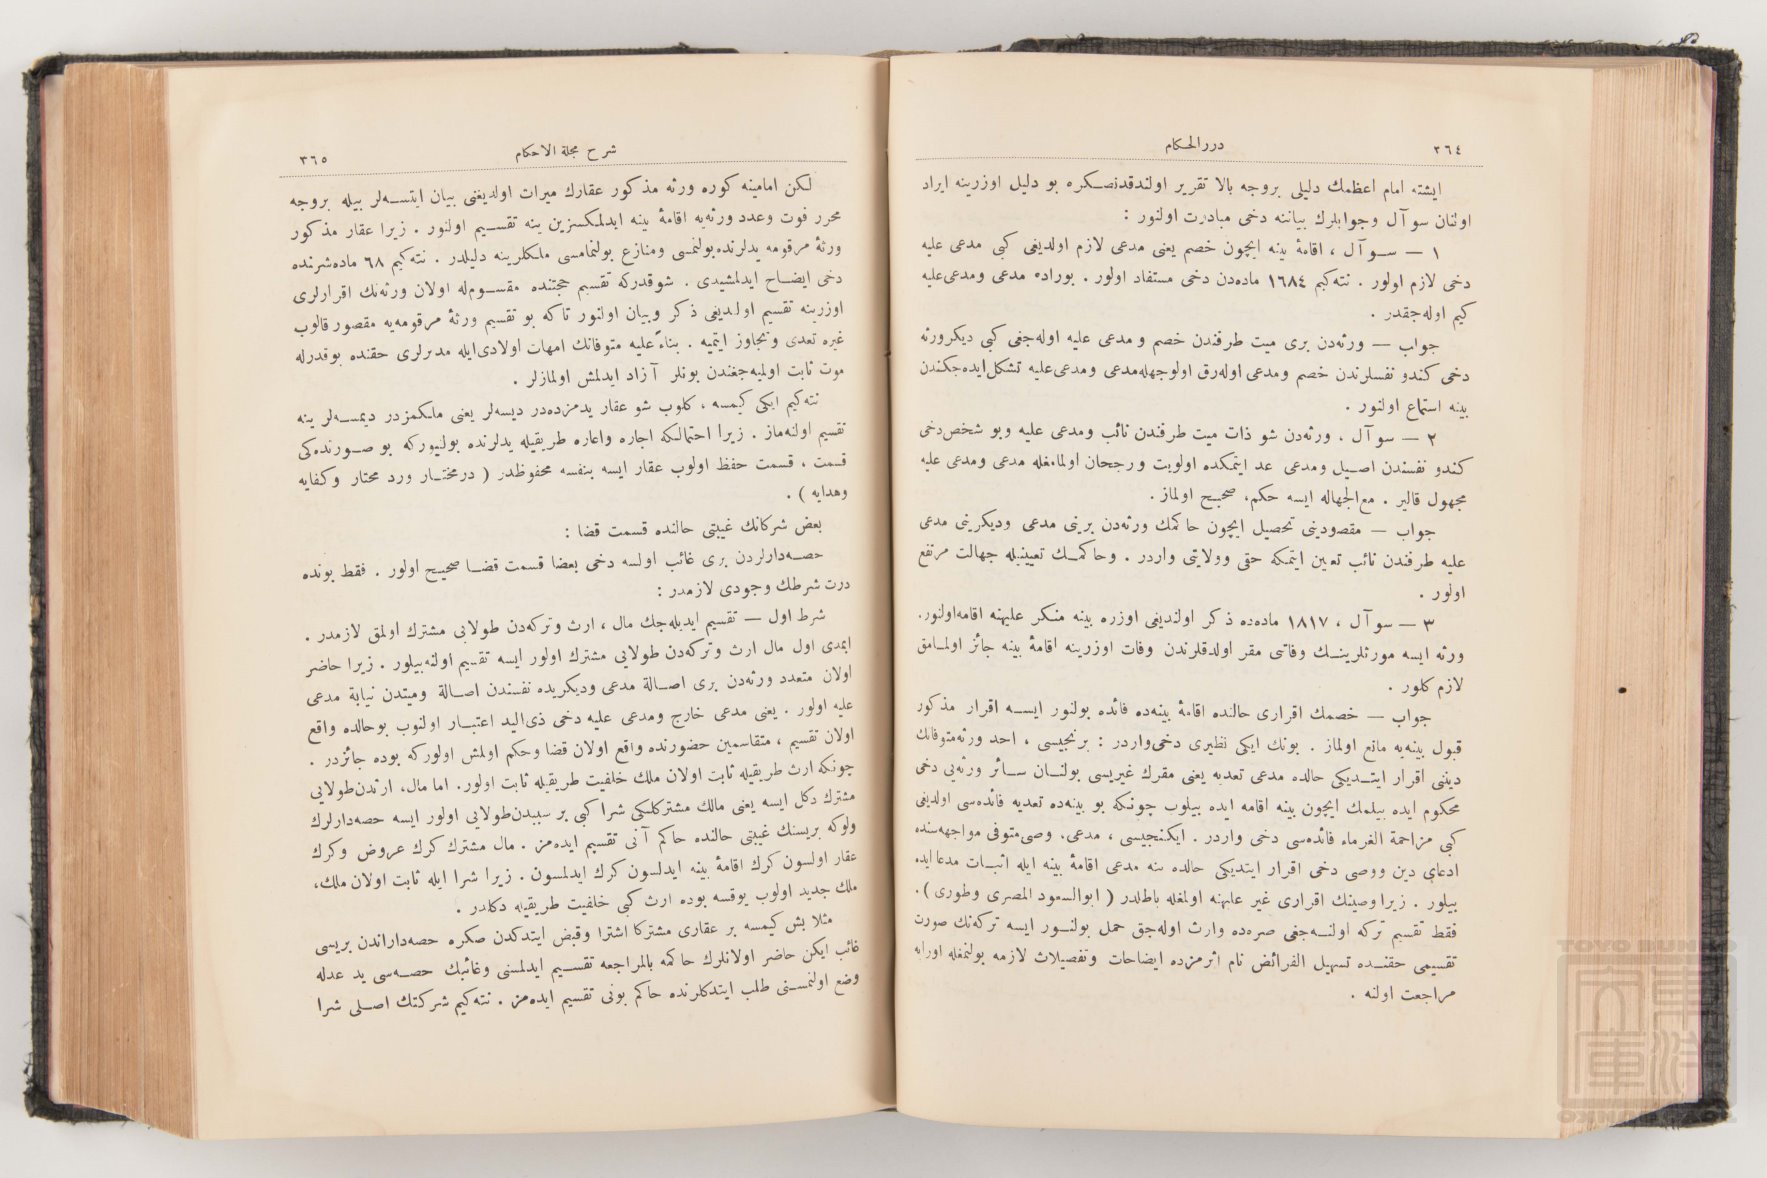 ٣٦٤
دررالحكام
ايشته امام اعظمك دليلى بروجه بالا تقرير اولندقدنصكره بو دليل اوزرينه ايراد
اولنان سوآل وجوابلرك بياننه دخى مبادرت اولنور :
١ — سوآل ، اقامۀ بينه ايچون خصم يعنى مدعى لازم اولديغى كبى مدعى عليه
دخى لازم اولور . نته‌كيم ١٦٨٤ ماده‌دن دخى مستفاد اولور . بوراده مدعى ومدعى‌عليه
كيم اوله‌جقدر .
جواب — ورثه‌دن برى ميت طرفندن خصم و مدعى عليه اوله‌جغى كبى ديكرورثه
دخى كندو نفسلرندن خصم ومدعى اوله‌رق اولوجهله‌مدعى ومدعى‌عليه تشكل‌ايده‌جكندن
بينه استماع اولنور .
٢ — سوآل ، ورثه‌دن شو ذات ميت طرفندن نائب ومدعى عليه وبو شخص‌دخى
كندو نفسندن اصيل ومدعى عد ايتمكده اولويت ورجحان اولمامغله مدعى ومدعى عليه
مجهول قالير . مع‌الجهاله ايسه حكم، صحيح اولماز .
جواب — مقصودينى تحصيل ايچون حاكمك ورثه‌دن برينى مدعى وديكرينى مدعى
عليه طرفندن نائب تعيين ايتمكه حقى وولايتى واردر . وحاكمك تعيينيله جهالت مرتفع
اولور .
٣ — سوآل ، ١٨١٧ ماده‌ده ذكر اولنديغى اوزره بينه منكر عليهنه اقامه‌اولنور.
ورثه ايسه مورثلرينك وفاتى مقر اولدقلرندن وفات اوزرينه اقامۀ بينه جائز اولمامق
لازم كلور .
جواب — خصمك اقرارى حالنده اقامۀ بينه‌ده فائده بولنور ايسه اقرار مذكور
قبول بينه‌يه مانع اولماز . بونك ايكى نظيرى دخى‌واردر : برنجيسى ، احد ورثه‌متوفانك
دينى اقرار ايتديكى حالده مدعى تعديه يعنى مقرك غيريسى بولنان سائر ورثه‌يى دخى
محكوم ايده بيلمك ايچون بينه اقامه ايده بيلوب چونكه بو بينه‌ده تعديه فائده‌سى اولديغى
كبى مزاحمة الغرماء فائده‌سى دخى واردر . ايكنجيسى ، مدعى، وصى‌متوفى مواجهه‌سنده
ادعاى دين ووصى دخى اقرار ايتديكى حالده ينه مدعى اقامۀ بينه ايله اثبات مدعاايده
بيلور . زيراوصينك اقرارى غير عليهنه اولمغله باطلدر ( ابوالسعود المصرى وطورى ).
فقط تقسيم تركه اولنه‌جغى صره‌ده وارث اوله‌جق حمل بولنور ايسه تركه‌نك صورت
تقسيمى حقنده تسهيل الفرائض نام اثرمزده ايضاحات وتفصيلات لازمه بولنمغله اورايه
مراجعت اولنه .
شرح مجلة الاحكام
٣٦٥
لكن امامينه كوره ورثه مذكور عقارك ميراث اولديغنى بيان ايتسه‌لر بيله بروجه
محرر فوت وعدد ورثه‌يه اقامۀ بينه ايدلمكسزين ينه تقسيم اولنور . زيرا عقار مذكور
ورثۀ مرقومه يدلرنده‌بولنمسى ومنازع بولنمامسى ملكلرينه دليلدر . نته‌كيم ٦٨ ماده‌شرنده
دخى ايضاح ايدلمشيدى . شوقدركه تقسيم حجتنده مقسوم‌له اولان ورثه‌نك اقرارلرى
اوزرينه تقسيم اولديغى ذكر وبيان اولنور تاكه بو تقسيم ورثۀ مرقومه‌يه مقصور قالوب
غيره تعدى وتجاوز ايتميه . بناءً عليه متوفانك امهات اولادى‌ايله مدبرلرى حقنده بوقدرله
موت ثابت اولميه‌جغندن بونلر آزاد ايدلمش اولمازلر .
نته‌كيم ايكى كيمسه ، كلوب شو عقار يدمزده‌در ديسه‌لر يعنى ملكمزدر ديمسه‌لر ينه
تقسيم اولنه‌ماز . زيرا احتمالكه اجاره واعاره طريقيله يدلرنده بولنيوركه بو صورنده‌كى
قسمت ، قسمت حفظ اولوب عقار ايسه بنفسه محفوظدر ( درمختار ورد محتار وكفايه
وهدايه ) .
بعض شركانك غيبتى حالنده قسمت قضا :
حصه‌دارلردن برى غائب اولسه دخى بعضا قسمت قضا صحيح اولور . فقط بونده
درت شرطك وجودى لازمدر :
شرط اول — تقسيم ايديله‌جك مال ، ارث وتركه‌دن طولايى مشترك اولمق لازمدر .
ايمدى اول مال ارث وتركه‌دن طولايى مشترك اولور ايسه تقسيم اولنه‌بيلور . زيرا حاضر
اولان متعدد ورثه‌دن برى اصالة مدعى وديكريده نفسندن اصالة وميتدن نيابة مدعى
عليه اولور . يعنى مدعى خارج ومدعى عليه دخى ذى‌اليد اعتبار اولنوب بوحالده واقع
اولان تقسيم ، متقاسمين حضورنده واقع اولان قضا وحكم اولمش اولوركه بوده جائزدر .
چونكه ارث طريقيله ثابت اولان ملك خلفيت طريقيله ثابت اولور. اما مال، ارثدن‌طولايى
مشترك دكل ايسه يعنى مالك مشتركلكى شرا كبى بر سببدن‌طولايى اولور ايسه حصه‌دارلرك
ولوكه بريسنك غيبتى حالنده حاكم آنى تقسيم ايده‌مز . مال مشترك كرك عروض وكرك
عقار اولسون كرك اقامۀ بينه ايدلسون كرك ايدلمسون . زيرا شرا ايله ثابت اولان ملك،
ملك جديد اولوب يوقسه بوده ارث كبى خلفيت طريقيله دكلدر .
مثلا بش كيمسه بر عقارى مشتركا اشترا وقبض ايتدكدن صكره حصه‌داراندن بريسى
غائب ايكن حاضر اولانلرك حاكمه بالمراجعه تقسيم ايدلمسنى وغائبك حصه‌سى يد عدله
وضع اولنمسنى طلب ايتدكلرنده حاكم بونى تقسيم ايده‌مز . نته‌كيم شركتك اصلى شرا
TOYO BUNKO
東洋文庫
TOYO BUNKO